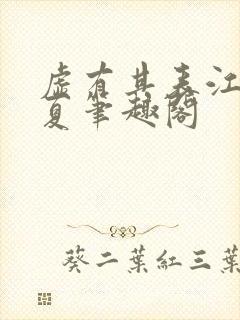 虛有其表江
夏筆趣閣
葵二葉紅三葉